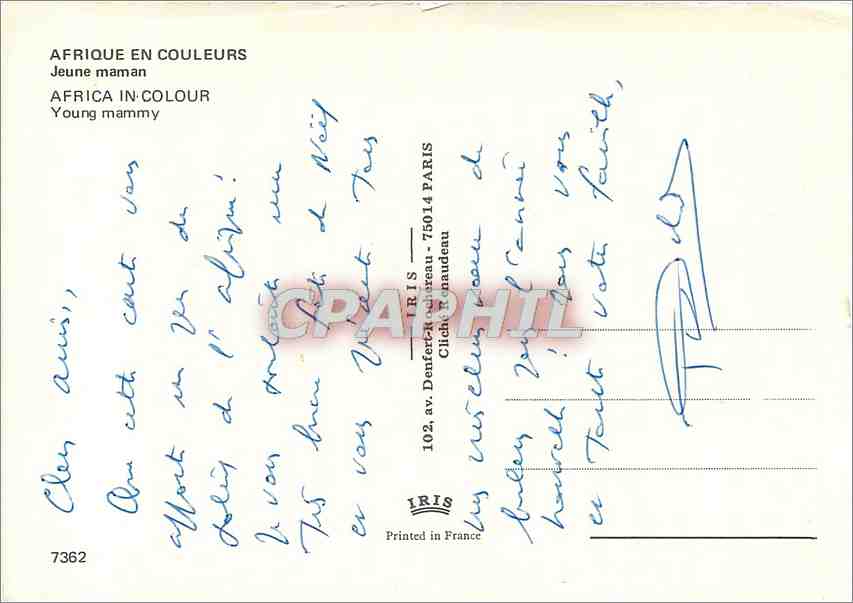 AFRIQUE EN COULEURS
Jeune maman
AFRICA IN COLOUR
Young mammy
Chers amis,,
Que cette carte vous
apporte un peu du
soleil de l'afrique!
Je vous souhaite une
Très bonne fête de Noël
et vous présente Tous
mes meilleurs voeux de
bonheur pour l'année
nouvelle! pour vous
et Toute votre famille,
IRIS
102, av. Denfert-Rochereau - 75014 PARIS
Cliché Renaudeau
CPAPHIL
IRIS
Printed in France
7362